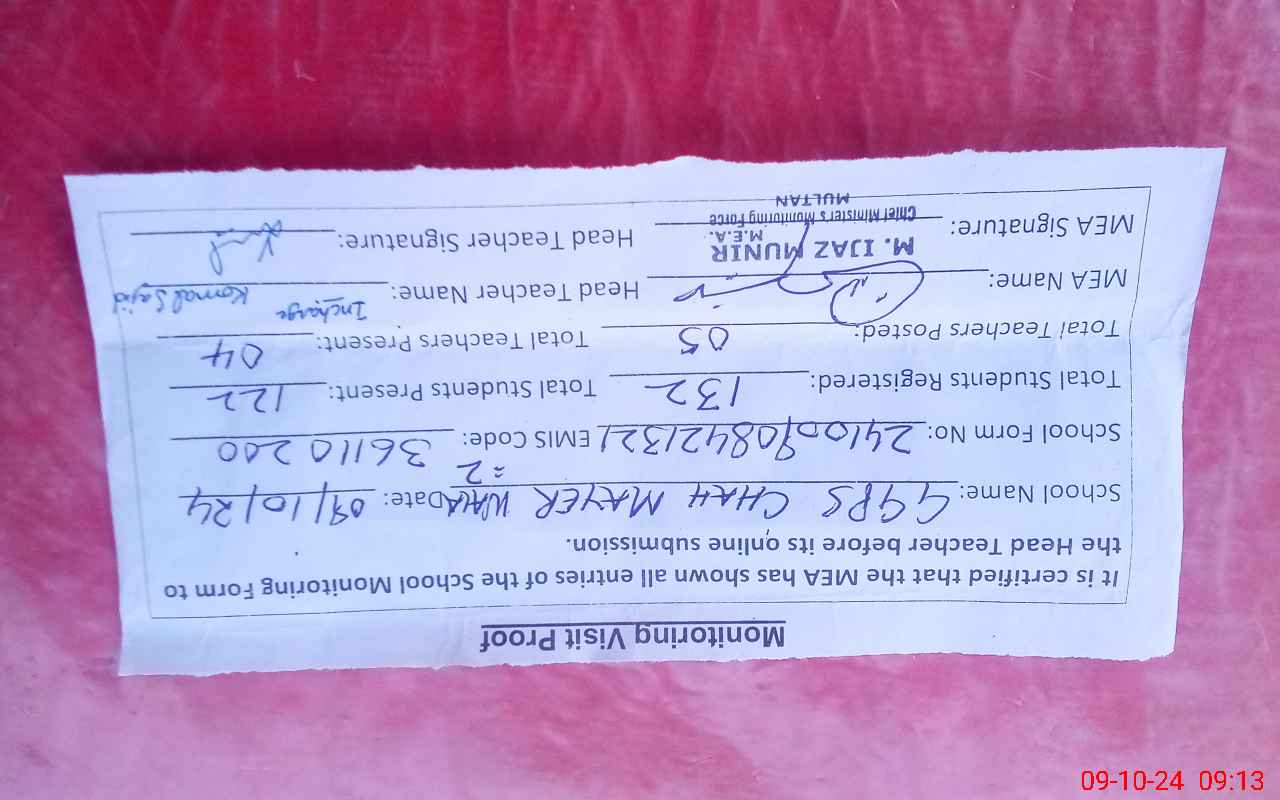 Monitoring Visit Proof
It is certified that the MEA has shown all entries of the School Monitoring Form to
the Head Teacher before its online submission.
School Name: GGPS CHAH MAYER WALA Date: 09/10/24
= 2
School Form No: EMIS Code: 36110200
Total Students Registered: 132 Total Students Present: 122
Total Teachers Posted: 05 Total Teachers Present: 04
MEA Name: Head Teacher Name: Incharge Komal Sajid
M. IJAZ MUNIR
M.E.A.
MEA Signature: Head Teacher Signature:
Chief Minister's Monitoring Force
MULTAN
09-10-24 09:13